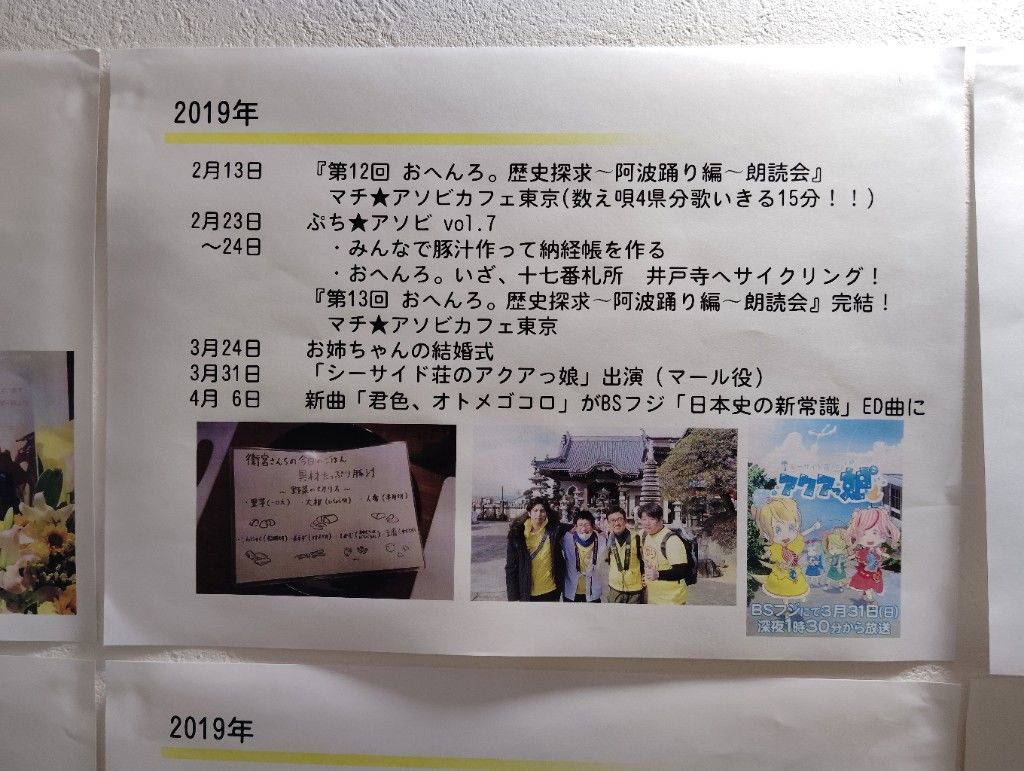 2019年
2月13日 『第12回 おへんろ。歴史探求～阿波踊り編～朗読会』
マチ★アソビカフェ東京(数え唄4県分歌いきる15分！！)
2月23日 ぷち★アソビ vol.7
～24日 ・みんなで豚汁作って納経帳を作る
・おへんろ。いざ、十七番札所 井戸寺へサイクリング！
『第13回 おへんろ。歴史探求～阿波踊り編～朗読会』完結！
マチ★アソビカフェ東京
3月24日 お姉ちゃんの結婚式
3月31日 「シーサイド荘のアクアっ娘」出演（マール役）
4月 6日 新曲「君色、オトメゴコロ」がBSフジ「日本史の新常識」ED曲に
衛宮さんちの今日のごはん
具材たっぷり豚汁
～野菜の切り方～
シーサイド荘の
アクアっ娘
BSフジにて3月31日(日)
深夜1時30分から放送
2019年